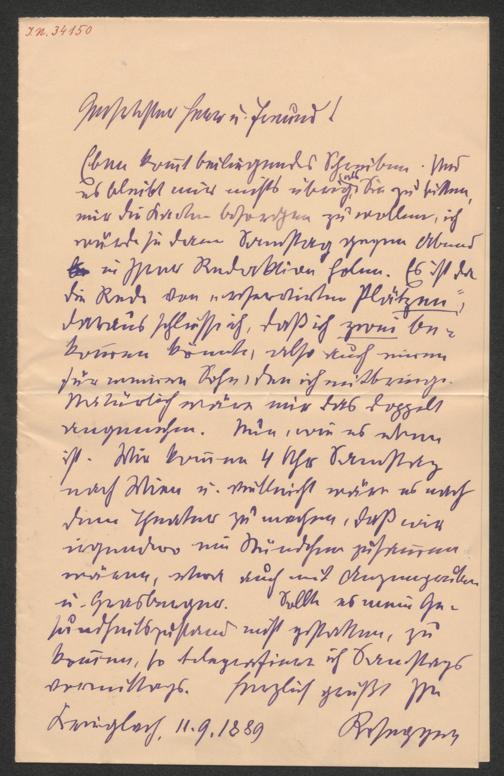 I.N. 34150
Geehrter Herr u. Freund!
Eben kom̅t beiliegendes Schreiben. Und
es bleibt mir nichts übrig, als Sie zu bitten,
mir die Karten besorgen zu wollen, ich
würde sie dann Samstag gegen Abend
in Ihrer Redaktion holen. Es ist da
die Rede von „reservirten Plätzen“,
daraus schließe ich, daß ich zwei be-
kom̅en könnte, also auch einen
für meinen Sohn, den ich mitbringe.
Natürlich wäre mir das doppelt
angenehm. Nun, wie es eben
ist. Wir kom̅en 4 Uhr Samstag
nach Wien u. vielleicht wäre es nach
dem Theater zu machen, daß wir
irgendwo ein Stündchen zusam̅en
wären, etwa auch mit Anzengruber
u. Grasberger. Sollte es mein Ge-
sundheitszustand nicht gestatten, zu
kom̅en, so telegrafiere ich Samstags
vormittags. Herzlich grüßt Ihr
Krieglach, 11.9.1889 Rosegger